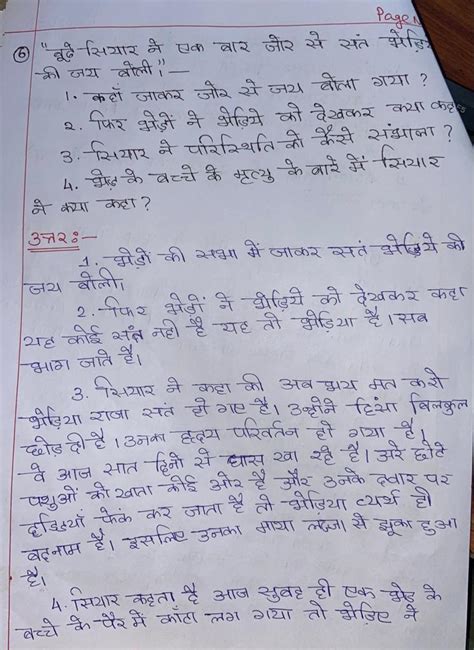 Page N
⑥ "बूढ़े सियार ने एक बार जोर से संत भेड़िये
की जय बोली।"—
1. कहाँ जाकर जोर से जय बोला गया ?
2. फिर भेड़ों ने भेड़िये को देखकर क्या कहा
3. सियार ने परिस्थिति को कैसे संभाला ?
4. भेड़ के बच्चे के मृत्यु के बारे में सियार
ने क्या कहा ?
उत्तरः—
1. भेड़ों की सभा में जाकर संत भेड़िये की
जय बोली।
2. फिर भेड़ों ने भेड़िये को देखकर कहा
यह कोई संत नहीं है यह तो भेड़िया है। सब
भाग जाते है।
3. सियार ने कहा की अब भय मत करो
भेड़िया राजा संत हो गए है। उन्होंने हिंसा बिलकुल
छोड़ दी है। उनका हृदय परिवर्तन हो गया है।
वे आज सात दिनों से घास खा रहे है। अरे छोटे
पशुओं को खाता कोई और है और उनके दवार पर
हड्डियाँ फेंक कर जाता है तो भेड़िया व्यर्थ ही
बदनाम है। इसलिए उनका माथा लज्जा से झूका हुआ
है।
4. सियार कहता है आज सुबह ही एक भेड़ के
बच्चे के पैर में काँटा लग गया तो भेड़िए ने